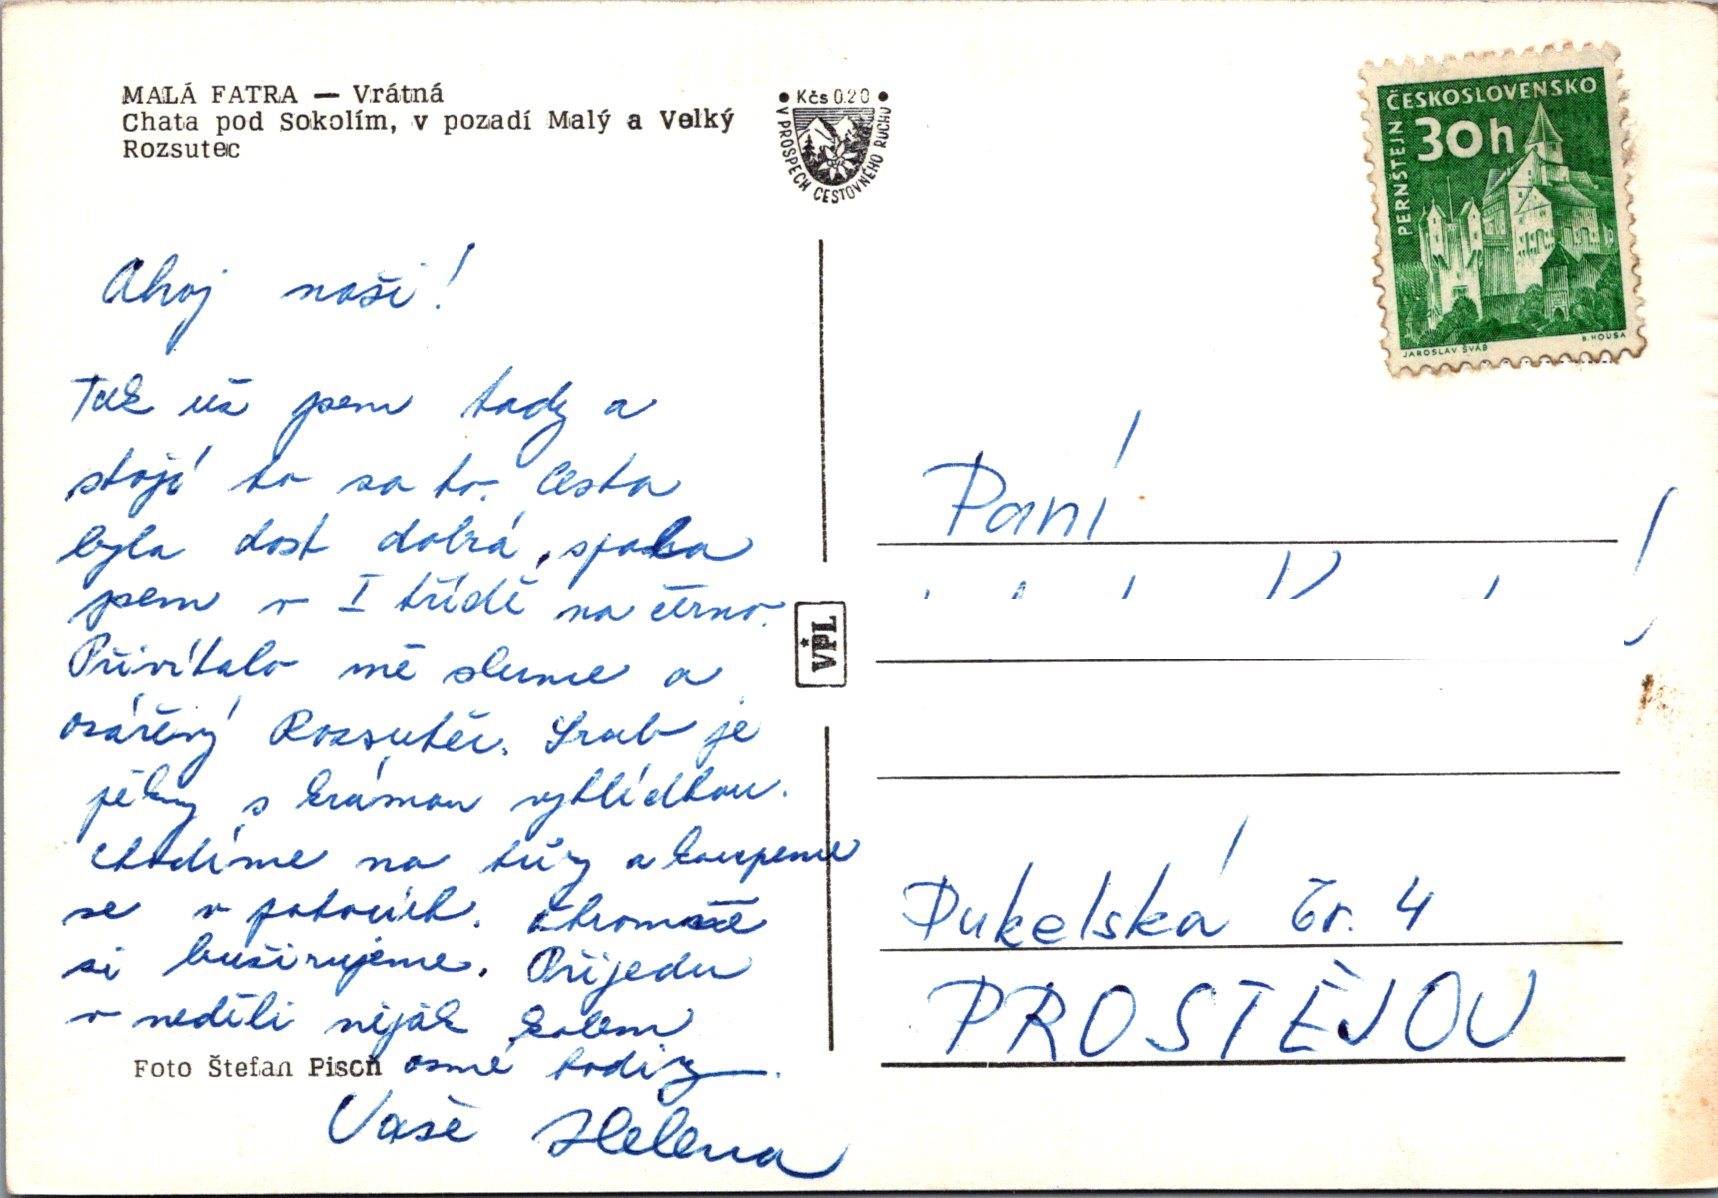 MALÁ FATRA — Vrátná
Chata pod Sokolím, v pozadí Malý a Velký
Rozsutec
Kčs 0.20
V PROSPECH CESTOVNÉHO RUCHU
ČESKOSLOVENSKO
30h
PERNŠTEJN
JAROSLAV ŠVÁB
B. HOUSA
Ahoj naši!
Tak už jsem tady a
stojí to za to. Cesta
byla dost dobrá, spala
jsem v I třídě na černo.
Přivítalo mě slunce a
ozářený Rozsutec. Srub je
pěkný s krásnou vyhlídkou.
Chodíme na túry a koupeme
se v potocích. Ohromně
si bušírujeme. Přijedu
v neděli nějak kolem
osmé hodiny.
Vaše Helena
Foto Štefan Piscň
VPL
Paní
Dukelská tř. 4
PROSTĚJOV